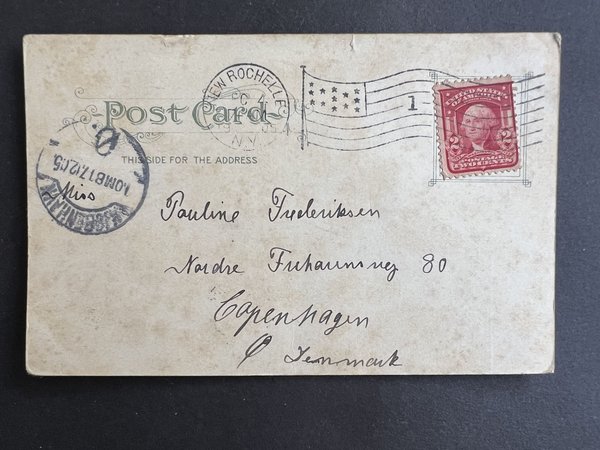 NEW ROCHELLE
N.Y.
1
UNITED STATES
OF AMERICA
2 2
POSTAGE
TWO CENTS
Post Card
THIS SIDE FOR THE ADDRESS
KJØBENHAVN
1.OMB 17.12.05
Ø.
Miss
Pauline Frederiksen
Nordre 80
Copenhagen
Denmark